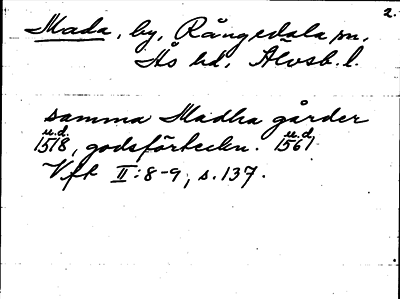 2.
Mada, by, Rångedala sn,
Ås hd, Älvsb. l.
samma Madha gårder
u.d. u.d.
1518, godsförteckn. 1561
Vft II:8-9, s. 137.